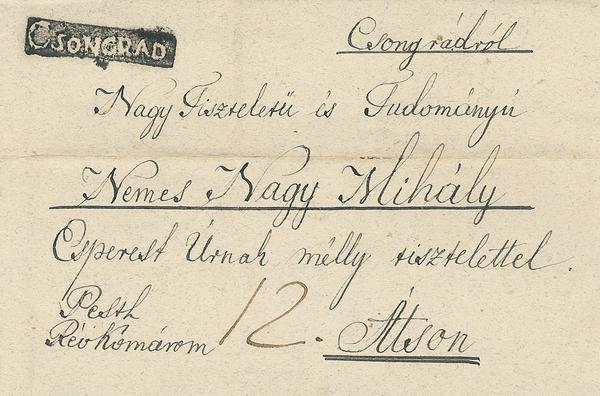 CSONGRAD
Csongrádról
Nagy Tiszteletü és Tudományú
Nemes Nagy Mihály
Esperest Úrnak mélly tisztelettel.
Pesth
Révkomárom
12.
Átson